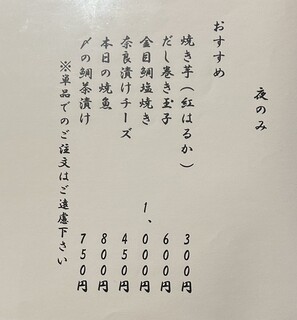 夜のみ
おすすめ
焼き芋(紅はるか) 300円
だし巻き玉子 600円
金目鯛塩焼き 1、000円
奈良漬けチーズ 450円
本日の焼魚 800円
〆の鯛茶漬け 750円
※単品でのご注文はご遠慮下さい